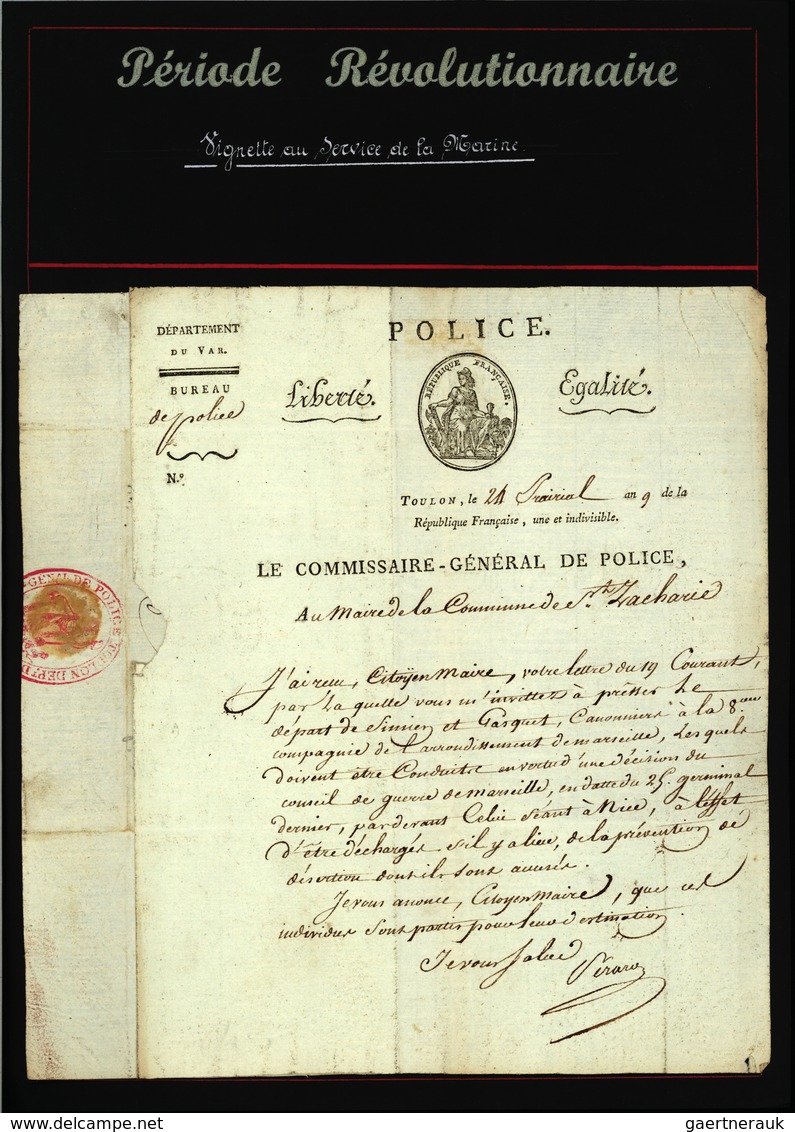 Période Révolutionnaire
Vignette au Service de la Marine.
DÉPARTEMENT
DU VAR.
BUREAU
de police
N.º
POLICE.
Liberté.
RÉPUBLIQUE FRANÇAISE.
Egalité.
TOULON, le 24 Prairial an 9 de la
République Française, une et indivisible.
LE COMMISSAIRE-GÉNÉRAL DE POLICE,
Au Maire de la Commune de St. Zacharie
GENAL DE POLICE TOULON DEPT D
J'ai reçu, Citoÿen Maire, votre lettre du 19 Courant,
par la quelle vous m'invittez à prèsser le
départ de Simier et Gasquet, Canonniers à la 8.eme
compagnie de l'arrondissement de marseille, Lesquels
doivent être Conduits en vertu d'une décision du
conseil de guerre de marseille, en datte du 25 germinal
dernier, par devant Celui Séant à Nice, à l'effet
d'être déchargés s'il y a lieu, de la prévention de
désertion dont ils sont accusés.
Je vous anonce, Citoyen Maire, que ces
individus sont partis pour leur destination.
Je vous salue
gaertnerauk